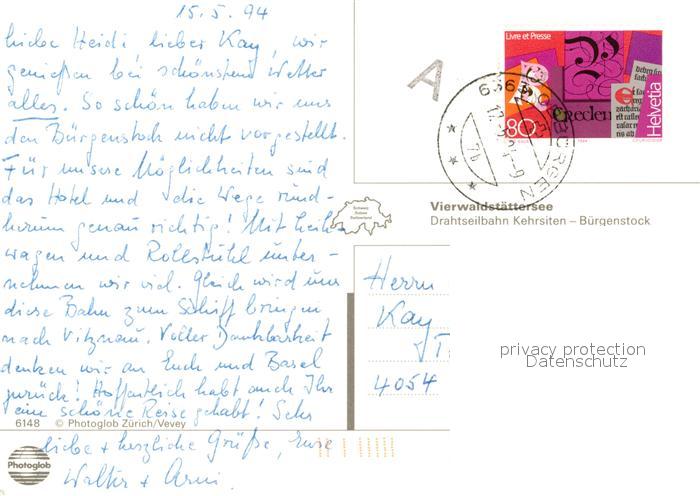 15.5.94
Liebe Heidi lieber Kay, wir
genießen bei schönstem Wetter
alles. So schön haben wir uns
den Bürgenstock nicht vorgestellt.
Für unsere Möglichkeiten sind
das Hotel und die Wege rund-
herum genau richtig! Mit
wagen und Rollstuhl unter-
nehmen wir viel. Gleich wird uns
diese Bahn zum Schiff bringen
nach Vitznau. Voller Dankbarkeit
denken wir an Euch und Basel
zurück! Hoffentlich habt auch Ihr
eine schöne Reise gehabt! Sehr
liebe + herzliche Grüße, Eure
Walter +
6148 © Photoglob Zürich/Vevey
Photoglob
A
Livre et Presse
80
Helvetia
6363 OBBÜRGEN
Schweiz
Suisse
Switzerland
Vierwaldstättersee
Drahtseilbahn Kehrsiten – Bürgenstock
Herrn
Kay
4054
privacy protection
Datenschutz